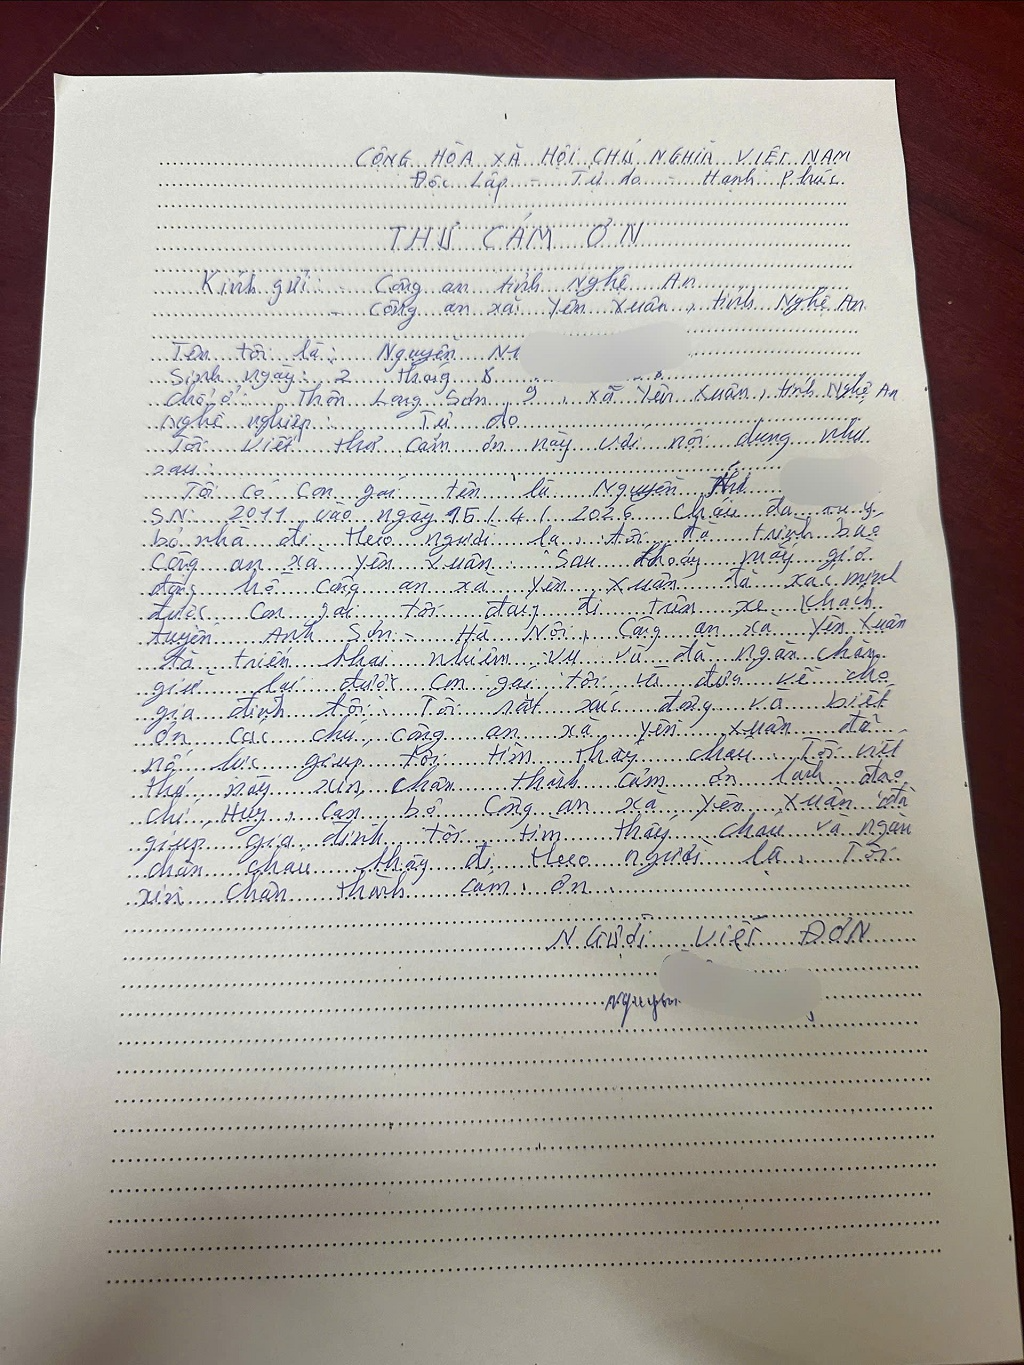 CỘNG HÒA XÃ HỘI CHỦ NGHĨA VIỆT NAM
Độc Lập - Tự do - Hạnh Phúc
THƯ CẢM ƠN
Kính gửi: Công an tỉnh Nghệ An
- Công an xã Yên Xuân, tỉnh Nghệ An
Tên tôi là: Nguyễn
Sinh ngày: 2 tháng 8
Chỗ ở: Thôn Long Sơn 9, xã Yên Xuân, tỉnh Nghệ An
Nghề nghiệp: Tự do
Tôi viết thư cảm ơn này với nội dung như
sau:
Tôi có con gái tên là Nguyễn Thị
SN: 2011 vào ngày 15/4/2026 cháu đã
bỏ nhà đi theo người lạ, tôi đã trình báo
Công an xã Yên Xuân. Sau mấy giờ
đồng hồ công an xã Yên Xuân đã xác minh
được con gái tôi đang đi trên xe khách
tuyến Anh Sơn - Hà Nội, Công an xã Yên Xuân
đã triển khai nhiệm vụ và đã ngăn chặn
giữ lại được con gái tôi và đưa về cho
gia đình tôi. Tôi rất xúc động và biết
ơn các chú công an xã Yên Xuân đã
nỗ lực giúp tôi tìm thấy cháu. Tôi viết
thư này xin chân thành cảm ơn lãnh đạo
chỉ Huy, cán bộ Công an xã Yên Xuân đã
giúp gia đình tôi tìm thấy cháu và ngăn
chặn cháu đi theo người lạ. Tôi
xin chân thành cảm ơn.
NGƯỜI VIẾT ĐƠN
Nguyễn